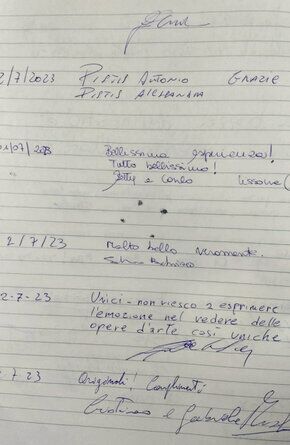 2/7/2023 PISTIS ANTONIO GRAZIE
PISTIS
01/07/2023 Bellissima esperienza!
" Tutto bellissimo!
e Carlo
2/7/23 Molto bello veramente.
2-7-23 Unici - non riesco a esprimere
l'emozione nel vedere delle
opere d'arte così uniche
7 23 Originali! Complimenti
Cristina e Gabriele